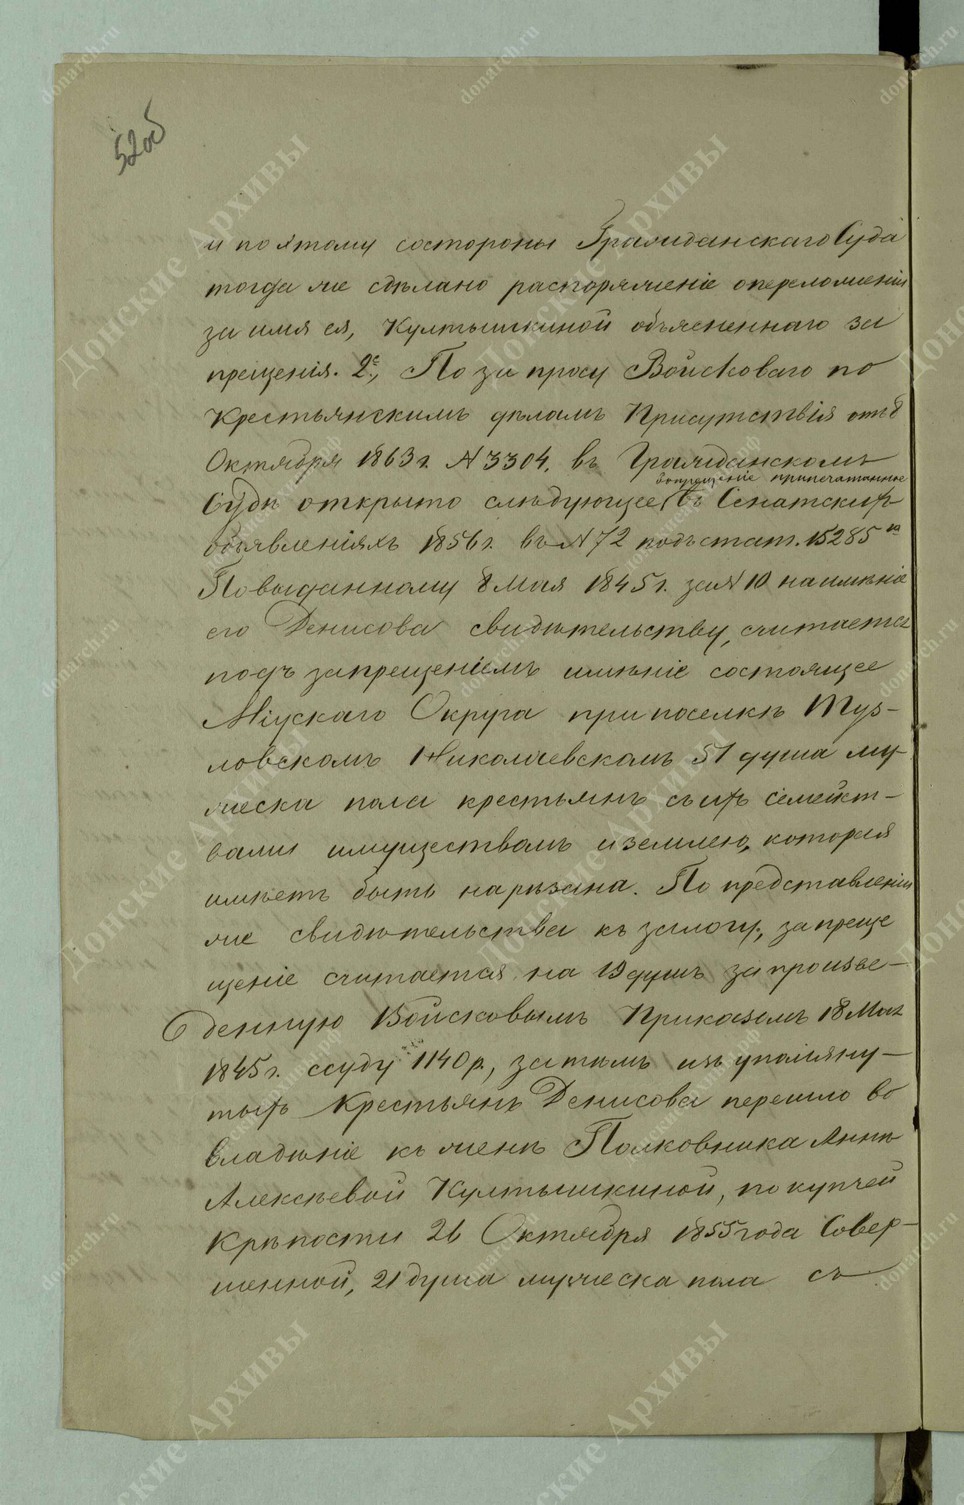 52об
и поэтому состороны Гражданскаго Суда
тогда же сдѣлано распоряженіе опереложеніи
за имя ея, Култышкиной объясненнаго за
прещенія. 2е, По за просу Войсковаго по
Крестьянскимъ дѣламъ Присутствія отъ 8
Октября 1863 г. N 3304, въ Гражданскомъ
запрещеніе припечатанное
Судѣ открыто слѣдующее, въ Сенатскихъ
объявленіяхъ 1856 г. въ N 72 подъ стат. 15285ю
По выданному 8 Мая 1845 г. за N 10 наимѣніе
его Денисова свидѣтельству, считается
подъ запрещеніемъ имѣніе состоящее
Міускаго Округа при поселкѣ Туз-
ловскомъ Николаевскомъ 51 душа му-
жеска пола крестьянъ съ ихъ семейст-
вами имуществомъ и землею, которая
имѣетъ быть нарѣзана. По представленіи
же свидѣтельства къ залогу, запреще
щеніе считается на 19 душъ за произве-
денную Войсковымъ Приказомъ 18 Мая
1845 г. ссуду 1140 р., затѣмъ изъ упомяну-
тыхъ Крестьянъ Денисова перешло во
владѣніе къ женѣ Полковника Аннѣ
Алексѣевой Култышкиной, по купчей
Крѣпости 26 Октября 1855 года Совер-
шенной, 21 душа мужеска пола съ
Донские Архивы
donarch.ru